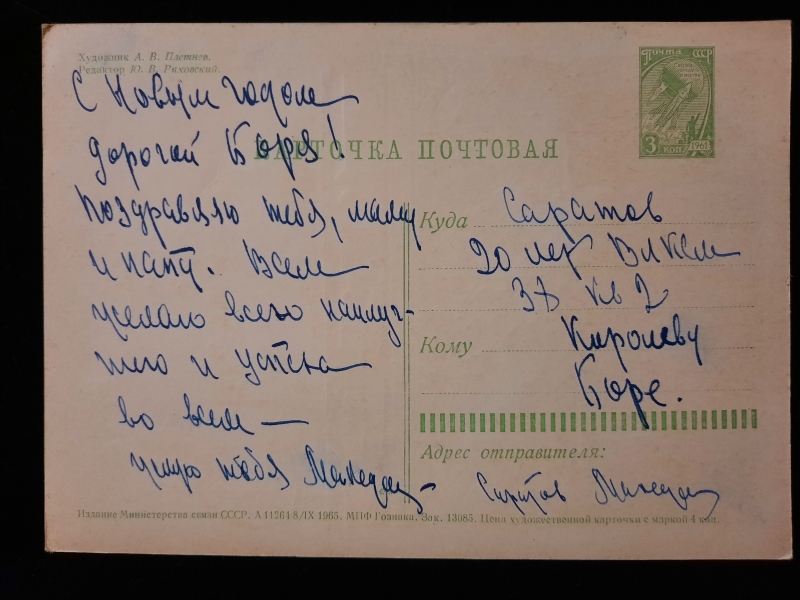 Художник А. В. Плетнев.
Редактор Ю. В. Ряховский.
ПОЧТА СССР
3 КОП 1961
С Новым годом
дорогой Боря!
КАРТОЧКА ПОЧТОВАЯ
Поздравляю тебя, маму
и папу. Всем
желаю всего наилуч-
шего и успеха
во всем —
целую тебя
Куда Саратов
20 лет ВЛКСМ
37 кв 2
Кому Королеву
Боре.
Адрес отправителя:
Саратов
Издание Министерства связи СССР. А 11264 8/IX 1965. МПФ Гознака. Зак. 13085. Цена художественной карточки с маркой 4 коп.